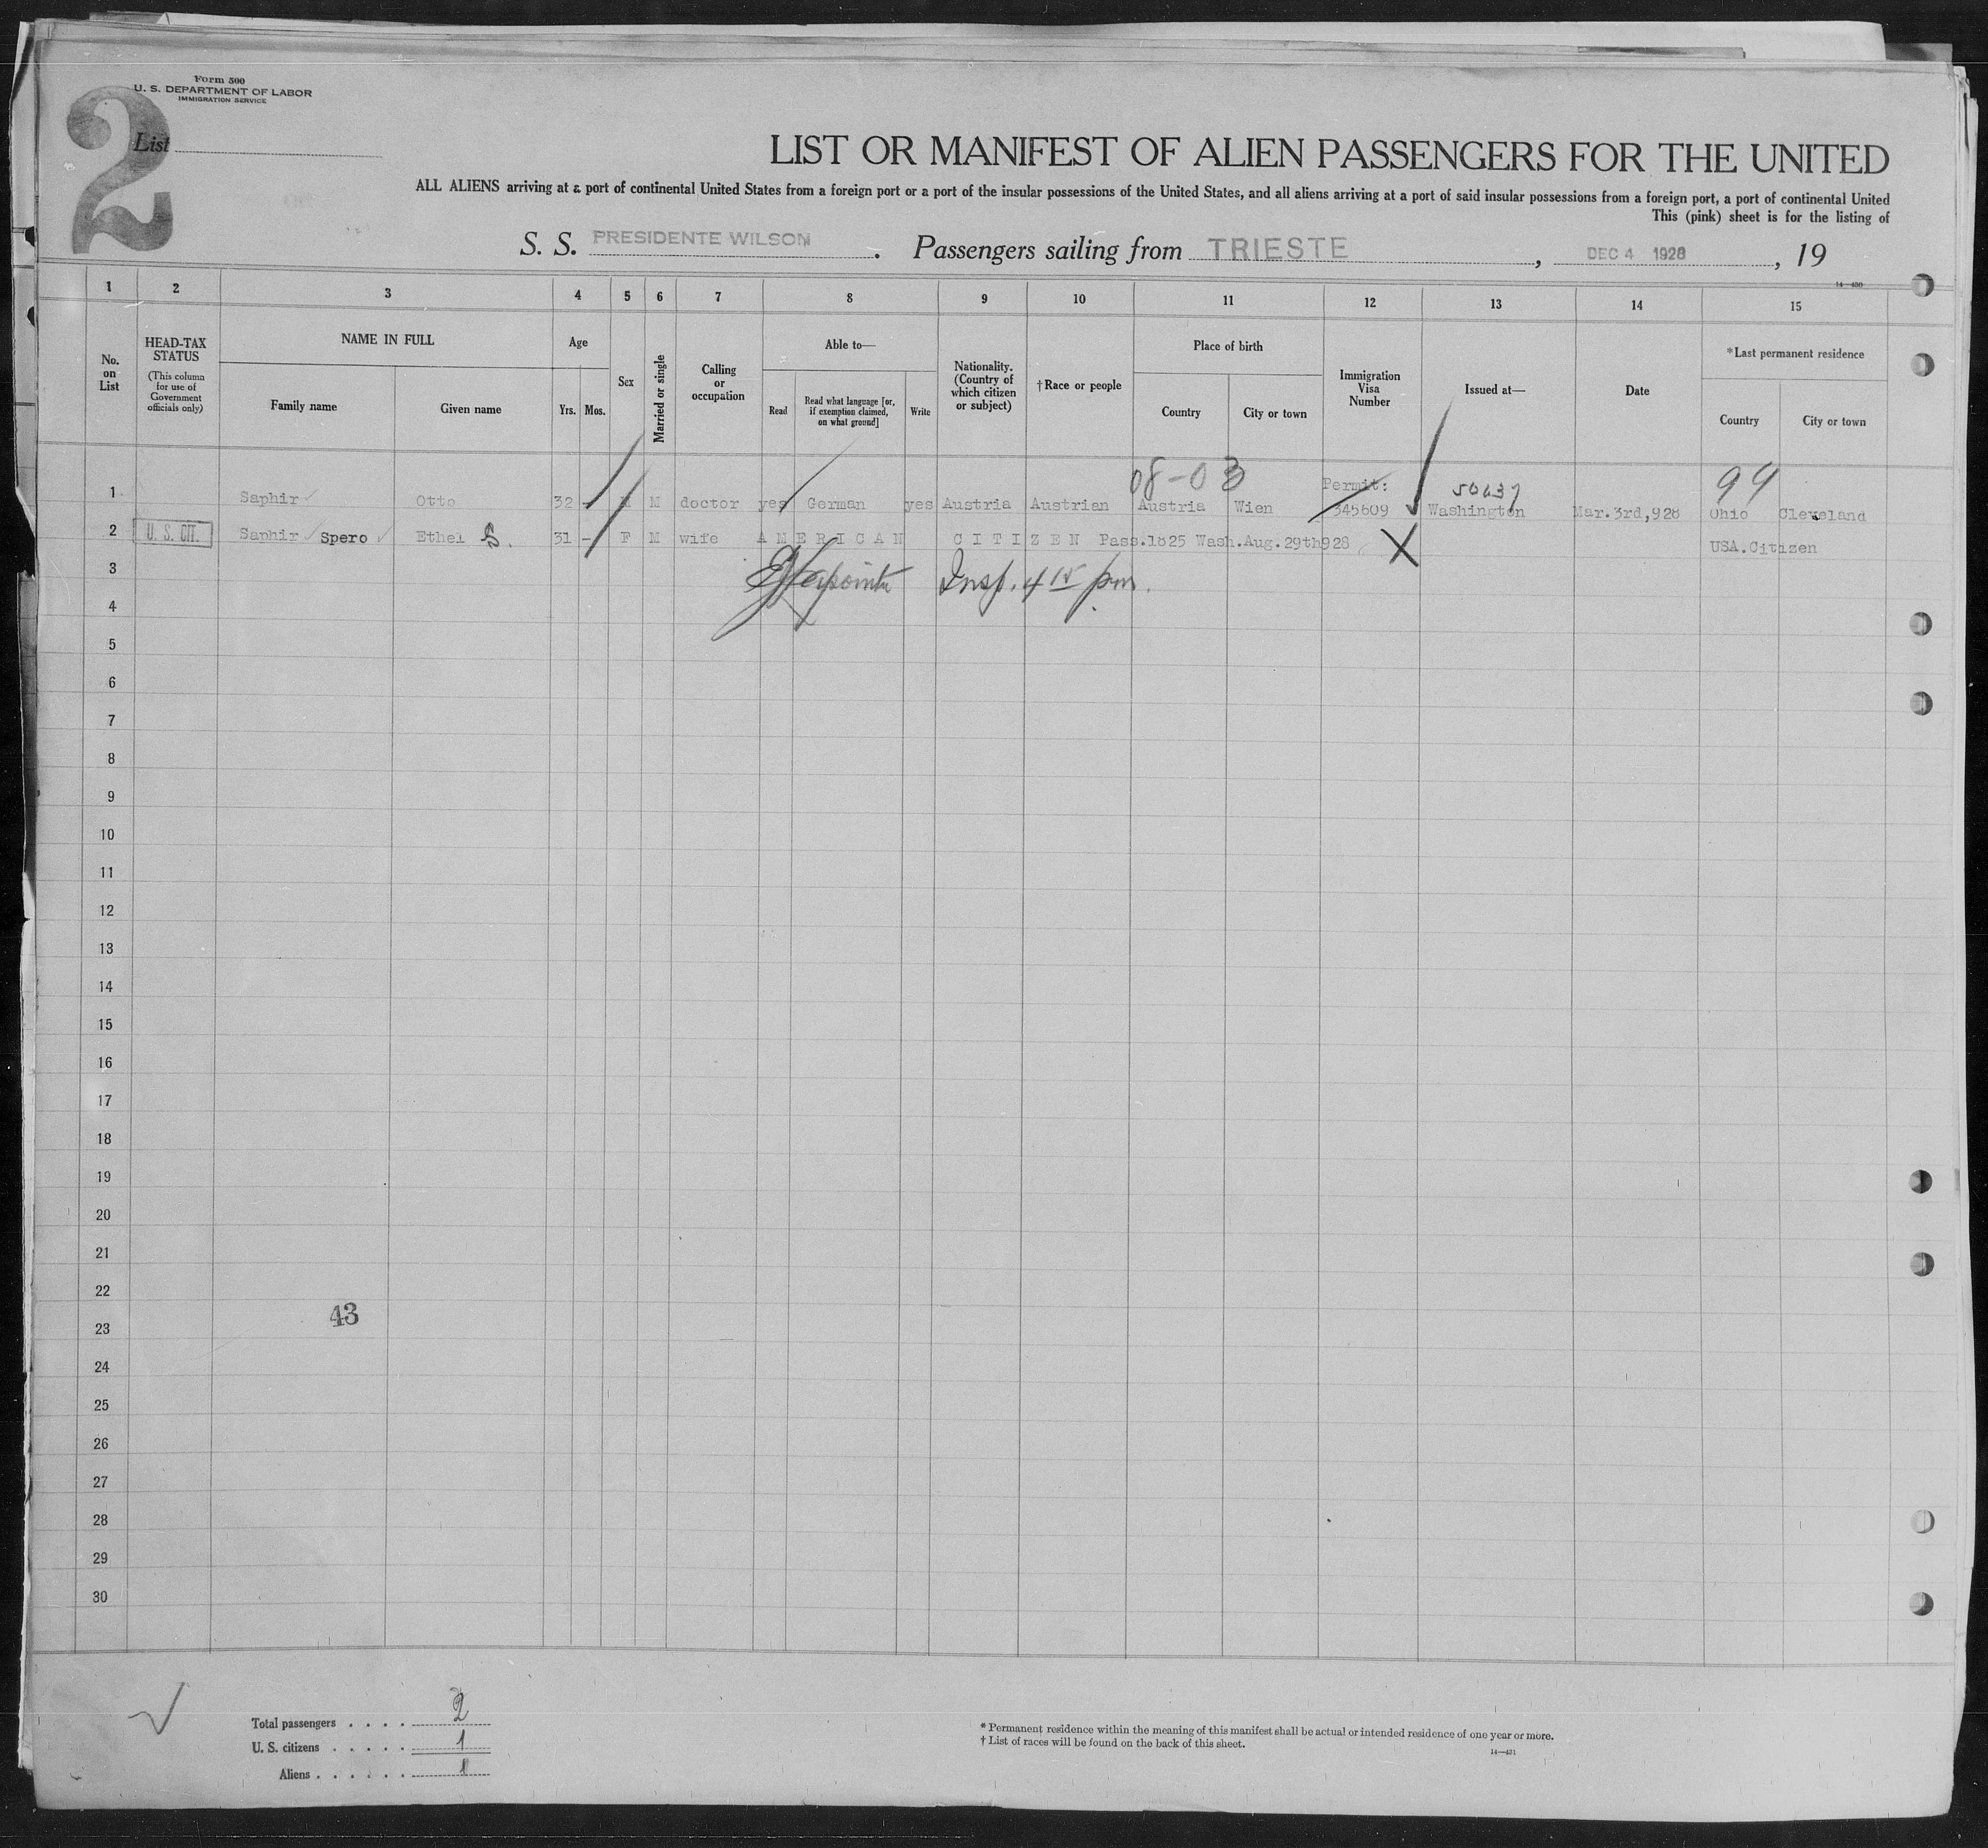 Form 500
U. S. DEPARTMENT OF LABOR
IMMIGRATION SERVICE
2
List
LIST OR MANIFEST OF ALIEN PASSENGERS FOR THE UNITED
ALL ALIENS arriving at a port of continental United States from a foreign port or a port of the insular possessions of the United States, and all aliens arriving at a port of said insular possessions from a foreign port, a port of continental United
This (pink) sheet is for the listing of
S. S. PRESIDENTE WILSON. Passengers sailing from TRIESTE, DEC 4 1928, 19
14—430
1 2 3 4 5 6 7 8 9 10 11 12 13 14 15
No. on List
HEAD-TAX STATUS
(This column for use of Government officials only)
NAME IN FULL
Family name
Given name
Age
Yrs. Mos.
Sex
Married or single
Calling or occupation
Able to—
Read
Read what language [or, if exemption claimed, on what ground]
Write
Nationality. (Country of which citizen or subject)
†Race or people
Place of birth
Country
City or town
Immigration Visa Number
Issued at—
Date
*Last permanent residence
Country
City or town
08-03
Permit:
50637
99
1 Saphir Otto 32 - M M doctor yes German yes Austria Austrian Austria Wien 345609 Washington Mar.3rd,928 Ohio Cleveland
2 U. S. CIT. Saphir Spero Ethel S. 31 - F M wife AMERICAN CITIZEN Pass.1825 Wash.Aug.29th928 X USA.Citizen
3 Insp. 4 15 pm.
4
5
6
7
8
9
10
11
12
13
14
15
16
17
18
19
20
21
22
43
23
24
25
26
27
28
29
30
Total passengers . . . . 2
U. S. citizens . . . . . 1
Aliens . . . . . . 1
* Permanent residence within the meaning of this manifest shall be actual or intended residence of one year or more.
† List of races will be found on the back of this sheet.
14—431